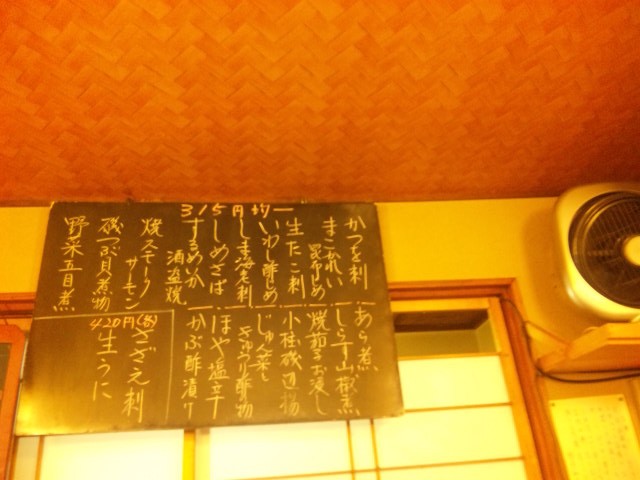 かつを刺
まこがれい
昆布〆め
生たこ刺
いわし酢〆め
しま海老刺
しめさば
するめいか
酒盗焼
315円均一
あら煮
しらす山椒煮
焼茄子お浸し
小柱磯辺揚
じゅん菜と
きゅうり酢物
ほや塩辛
かぶ酢漬け
焼スモーク
サーモン
磯つぶ貝煮物
野菜五目煮
さざえ刺
420円(各)
生うに